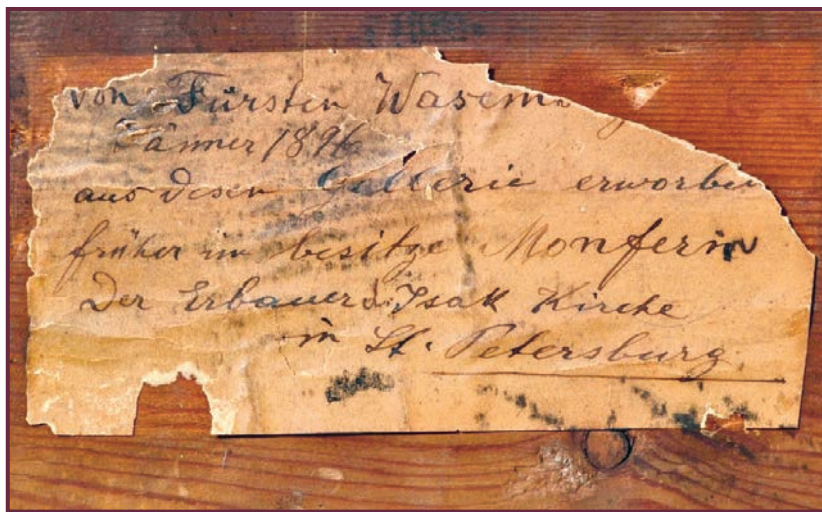 von Fürsten Wasem
Jänner 1896
aus desen Gallerie erworben
früher im besitze Monferin
Der Erbauer d. Isak Kirche
in St. Petersburg